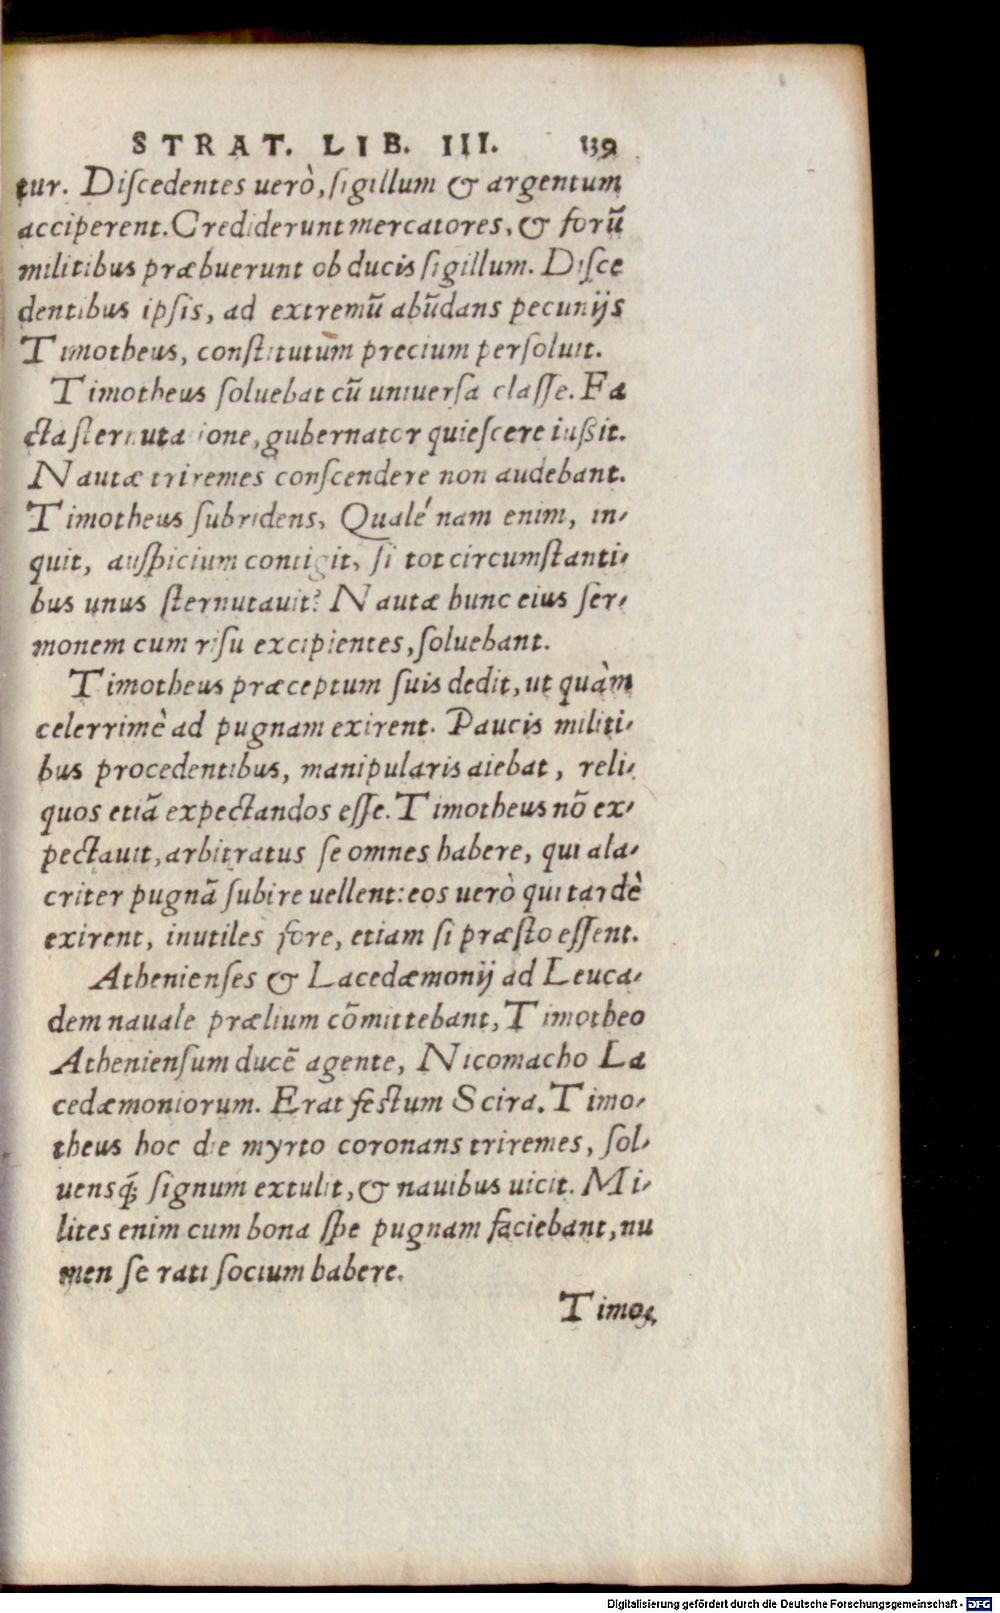 STRAT. LIB. III. 139
tur. Diſcedentes uerò, ſigillum & argentum
acciperent. Crediderunt mercatores, & forū
militibus præbuerunt ob ducis ſigillum. Diſce
dentibus ipſis, ad extremū abūdans pecunijs
Timotheus, conſtitutum precium perſoluit.
Timotheus ſoluebat cū uniuerſa claſſe. Fa
cta ſternutatione, gubernator quieſcere iußit.
Nautæ triremes conſcendere non audebant.
Timotheus ſubridens, Qualé nam enim, in-
quit, auſpicium contigit, ſi tot circumſtanti-
bus unus ſternutauit? Nautæ hunc eius ſer-
monem cum riſu excipientes, ſoluebant.
Timotheus præceptum ſuis dedit, ut quàm
celerrimè ad pugnam exirent. Paucis militi-
bus procedentibus, manipularis aiebat, reli-
quos etiā expectandos eſſe. Timotheus nō ex-
pectauit, arbitratus ſe omnes habere, qui ala-
criter pugnā ſubire uellent: eos uerò qui tardè
exirent, inutiles fore, etiam ſi præſto eſſent.
Athenienſes & Lacedæmonij ad Leuca-
dem nauale prælium cōmittebant, Timotheo
Athenienſum ducē agente, Nicomacho La
cedæmoniorum. Erat feſtum Scira. Timo-
theus hoc die myrto coronans triremes, ſol-
uensq́; ſignum extulit, & nauibus uicit. Mi-
lites enim cum bona ſpe pugnam faciebant, nu
men ſe rati ſocium habere.
Timo-
Digitalisierung gefördert durch die Deutsche Forschungsgemeinschaft - DFG